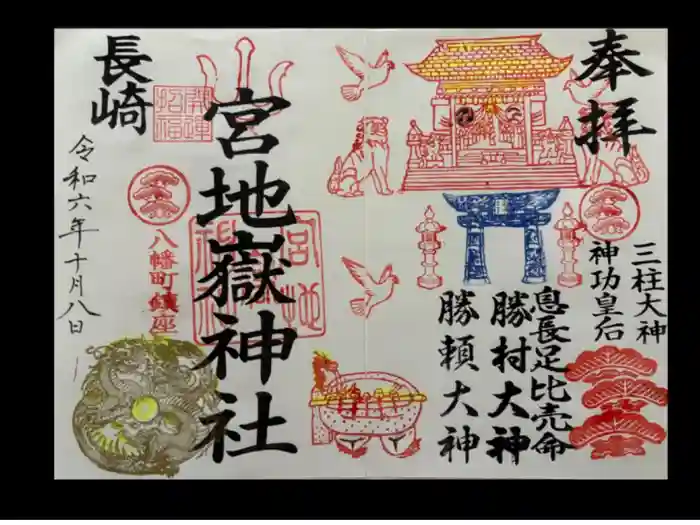 奉拝
三柱大神
神功皇后
息長足比売命
勝村大神
勝頼大神
長崎
開運
招福
宮地嶽神社
八幡町鎮座
令和六年十月八日